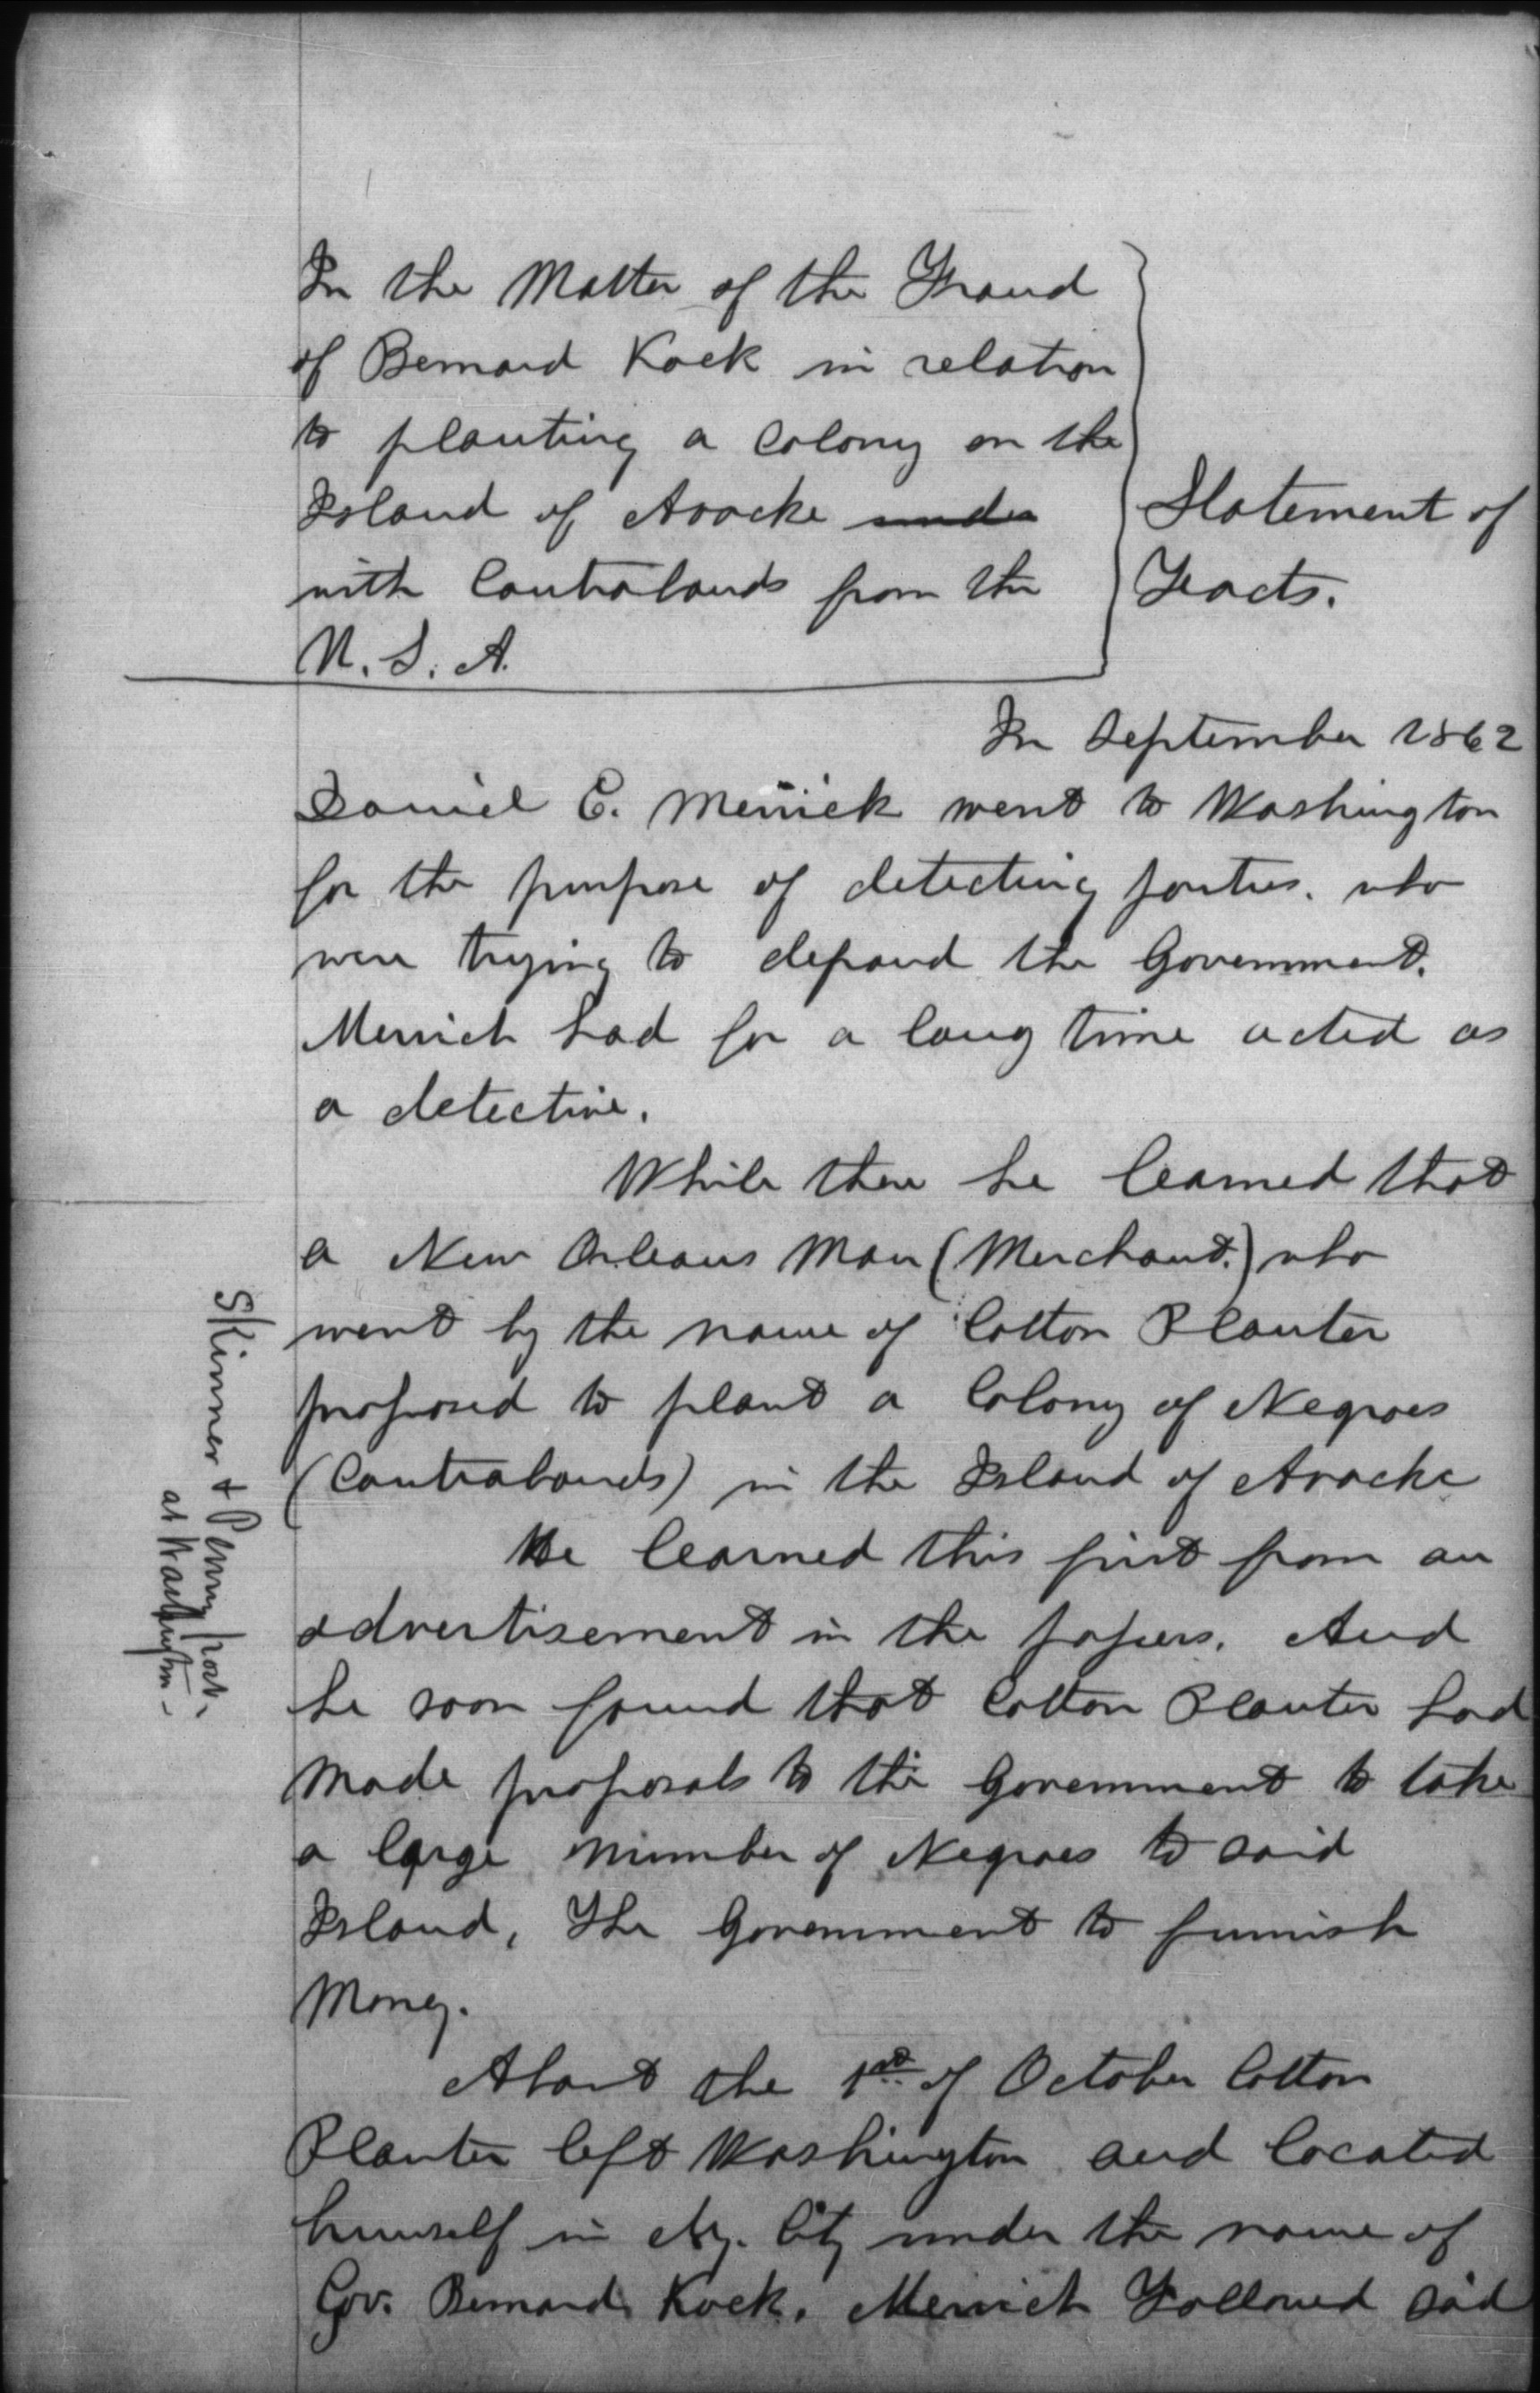 In the Matter of the Fraud
of Bernard Kock in relation
to planting a Colony on the
Island of Avacke under
with Contrabands from the
U. S. A.
Statement of
Facts.
In September 1862
Daniel E. Merrick went to Washington
for the purpose of detecting parties. who
were trying to defraud the Government.
Merrick had for a long time acted as
a detective.
While there he learned that
a New Orleans Man (Merchant.) who
went by the name of Cotton Planter
proposed to plant a Colony of Negroes
(Contrabands) in the Island of Avacke
He learned this first from an
advertisement in the papers. And
he soon found that Cotton Planter had
made proposals to the Government to take
a large number of Negroes to said
Island, The Government to furnish
Money.
About the 1st of October Cotton
Planter left Washington and located
himself in Ny. City under the name of
Gov. Bernard Kock. Merrick Followed said
Skinner & Penny
at Washington -